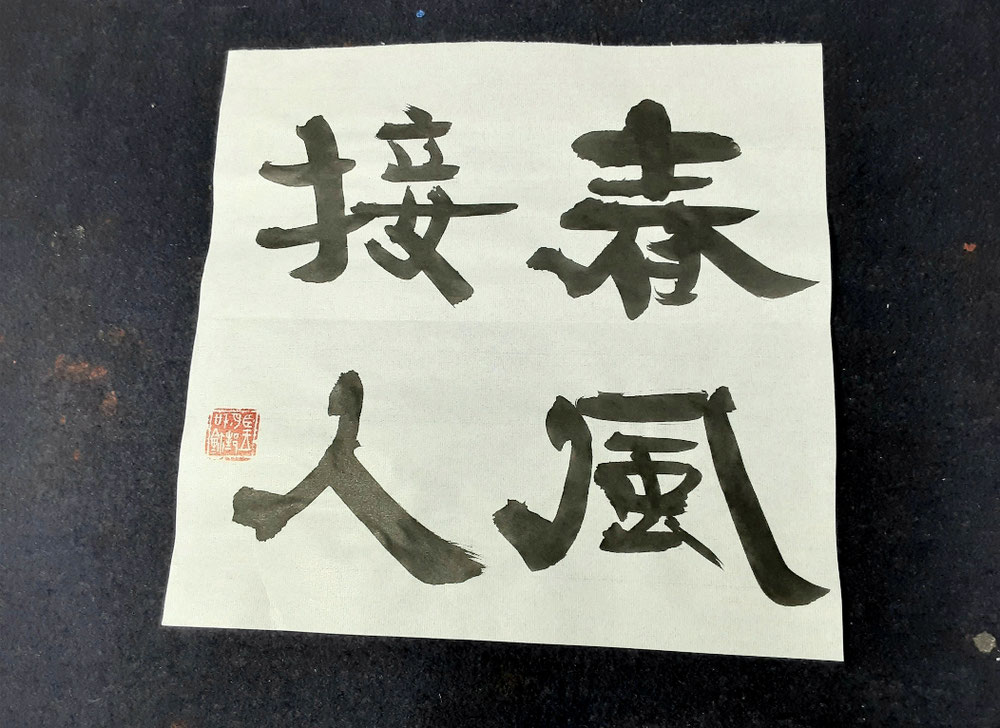 春風
接人